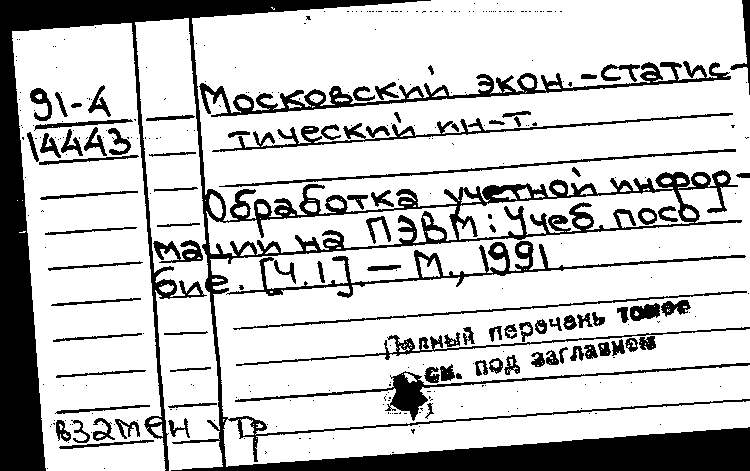 91-4
14443
Московский экон.-статис-
тический ин-т.
Обработка учетной инфор-
мации на ПЭВМ: Учеб. посо-
бие. [Ч.1.]. — М., 1991.
Полный перечень томов
см. под заглавием
взамен утр